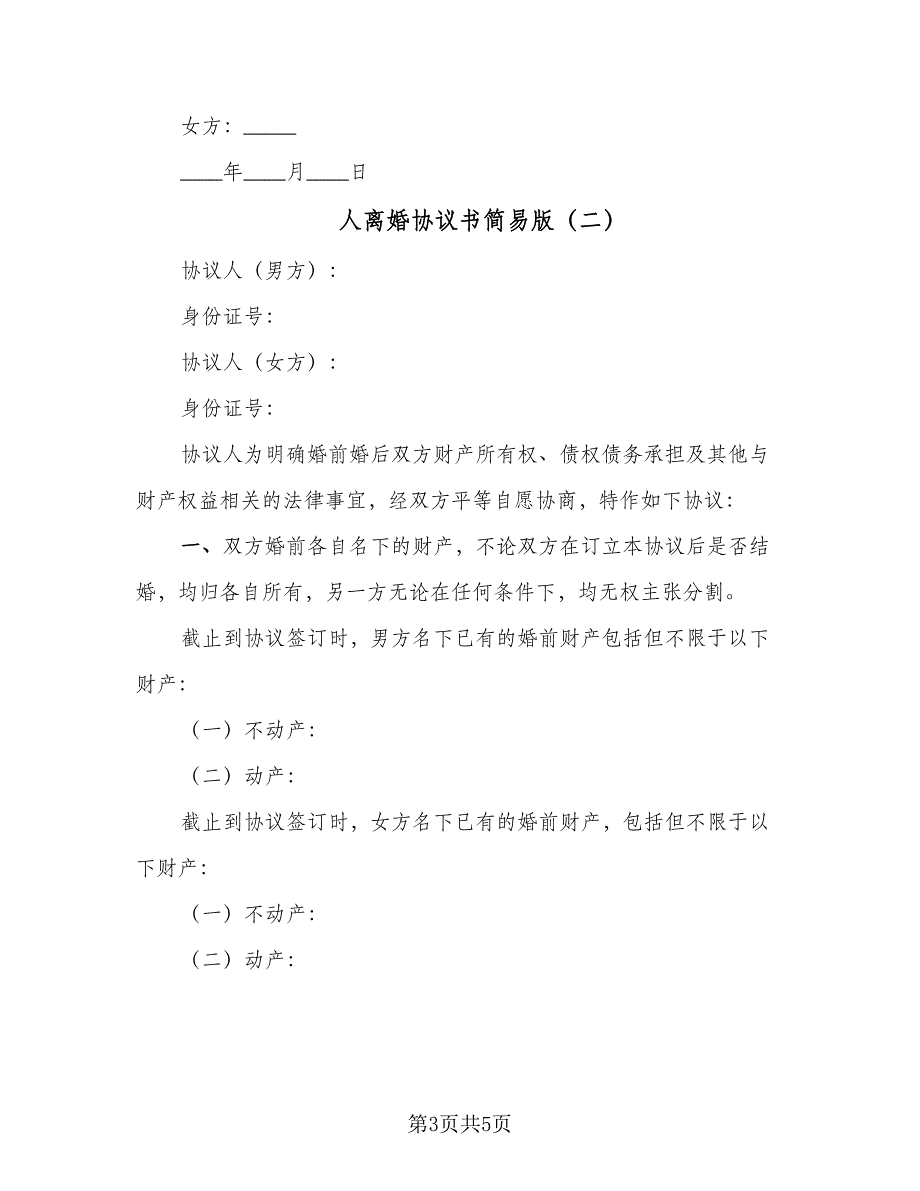 女方：_____
____年____月____日
人离婚协议书简易版（二）
协议人（男方）：
身份证号：
协议人（女方）：
身份证号：
协议人为明确婚前婚后双方财产所有权、债权债务承担及其他与
财产权益相关的法律事宜，经双方平等自愿协商，特作如下协议：
一、双方婚前各自名下的财产，不论双方在订立本协议后是否结
婚，均归各自所有，另一方无论在任何条件下，均无权主张分割。
截止到协议签订时，男方名下已有的婚前财产包括但不限于以下
财产：
（一）不动产：
（二）动产：
截止到协议签订时，女方名下已有的婚前财产，包括但不限于以
下财产：
（一）不动产：
（二）动产：
第3页共5页